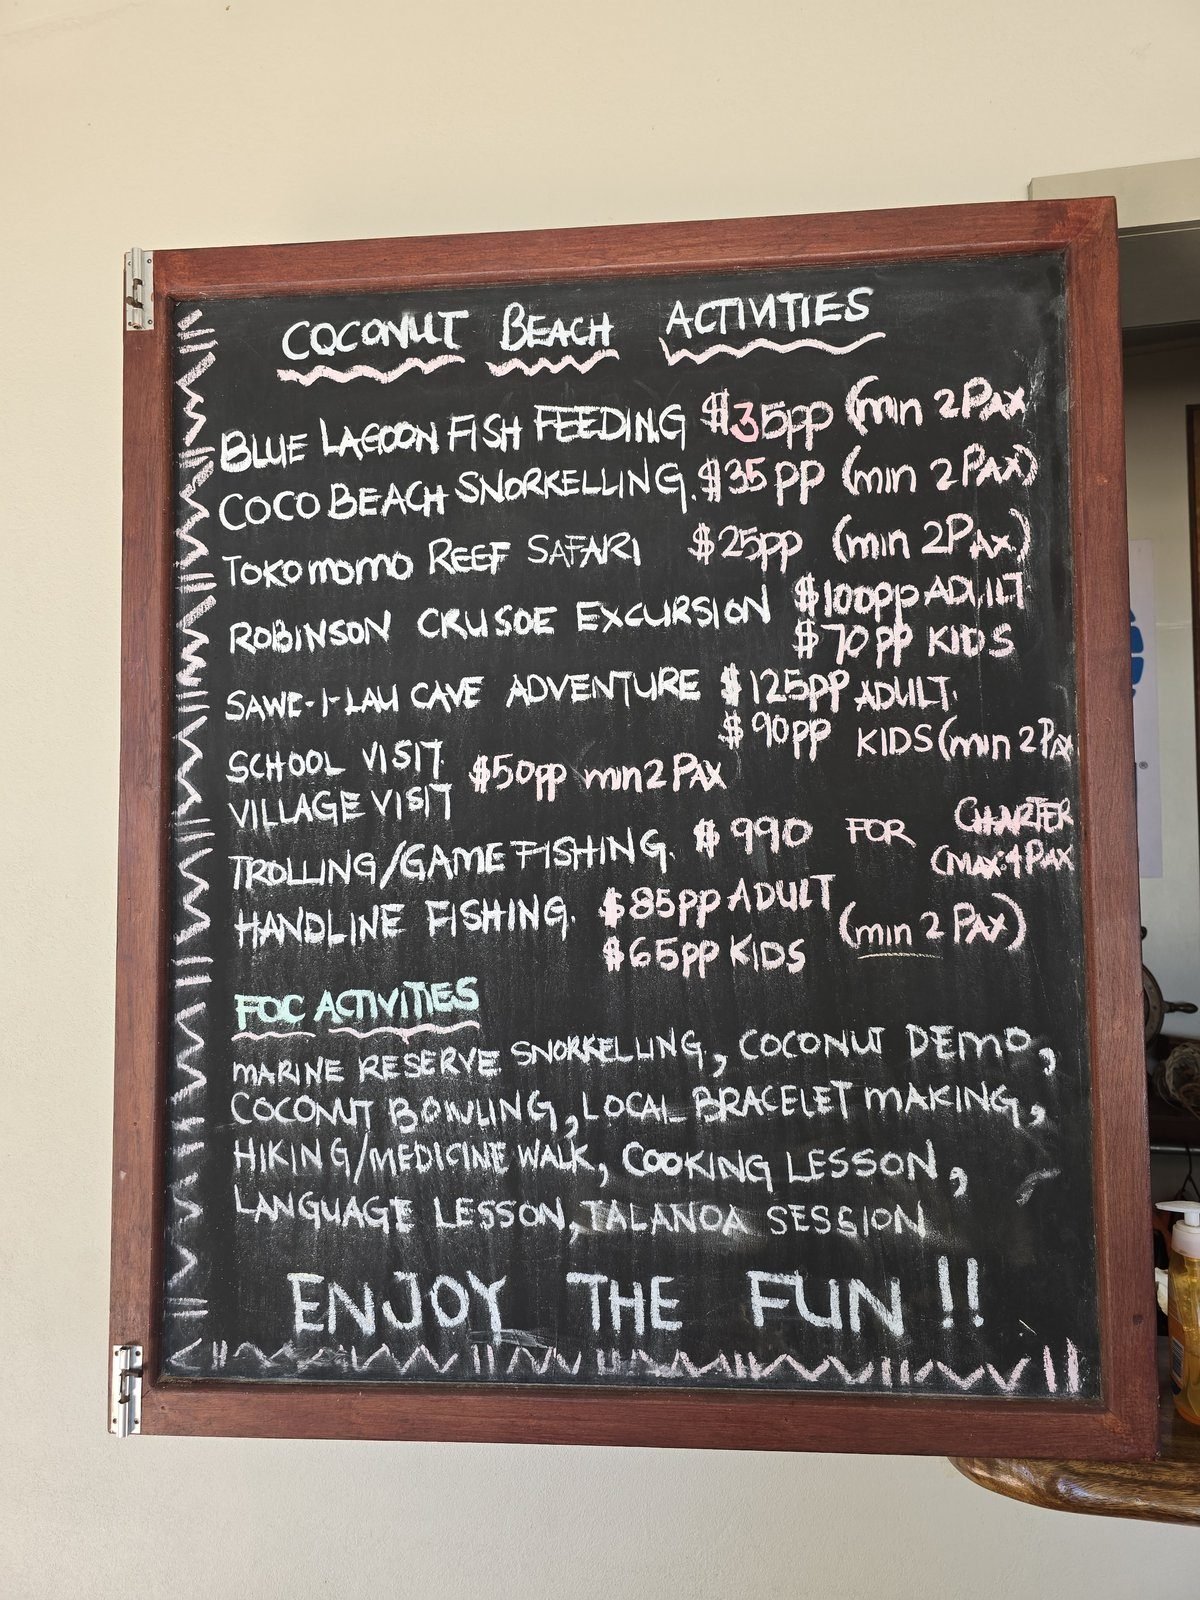 COCONUT BEACH ACTIVITIES
BLUE LAGOON FISH FEEDING $35pp (min 2 PAX
COCO BEACH SNORKELLING. $35 pp (min 2 PAX)
TOKOMOMO REEF SAFARI $25pp (min 2 PAX)
ROBINSON CRUSOE EXCURSION $100pp ADULT
$70pp KIDS
SAWE-I-LAU CAVE ADVENTURE $125pp ADULT.
$90pp KIDS (min 2 PAX
SCHOOL VISIT. $50pp min 2 PAX
VILLAGE VISIT
TROLLING/GAME FISHING. $990 FOR CHARTER
(MAX:4 PAX
HANDLINE FISHING. $85pp ADULT (min 2 PAX)
$65pp KIDS
FOC ACTIVITIES
MARINE RESERVE SNORKELLING, COCONUT DEMO,
COCONUT BOWLING, LOCAL BRACELET MAKING,
HIKING/MEDICINE WALK, COOKING LESSON,
LANGUAGE LESSON, TALANOA SESSION
ENJOY THE FUN !!